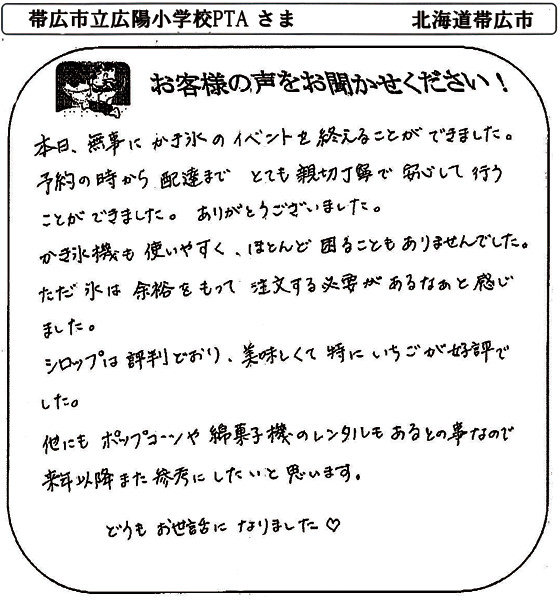 帯広市立広陽小学校PTA さま 北海道帯広市
お客様の声をお聞かせください！
本日、無事に かき氷の イベントを 終えることが できました。
予約の時から 配達まで とても 親切丁寧で 安心して 行う
ことが できました。 ありがとうございました。
かき氷機も 使いやすく、ほとんど 困ることも ありませんでした。
ただ 氷は 余裕をもって 注文する必要が あるなぁと 感じ
ました。
シロップは 評判どおり、美味しくて 特に いちごが 好評で
した。
他にも ポップコーンや 綿菓子機のレンタルも あるとの事なので
来年以降 また 参考に したいと 思います。
どうも お世話に なりました♡